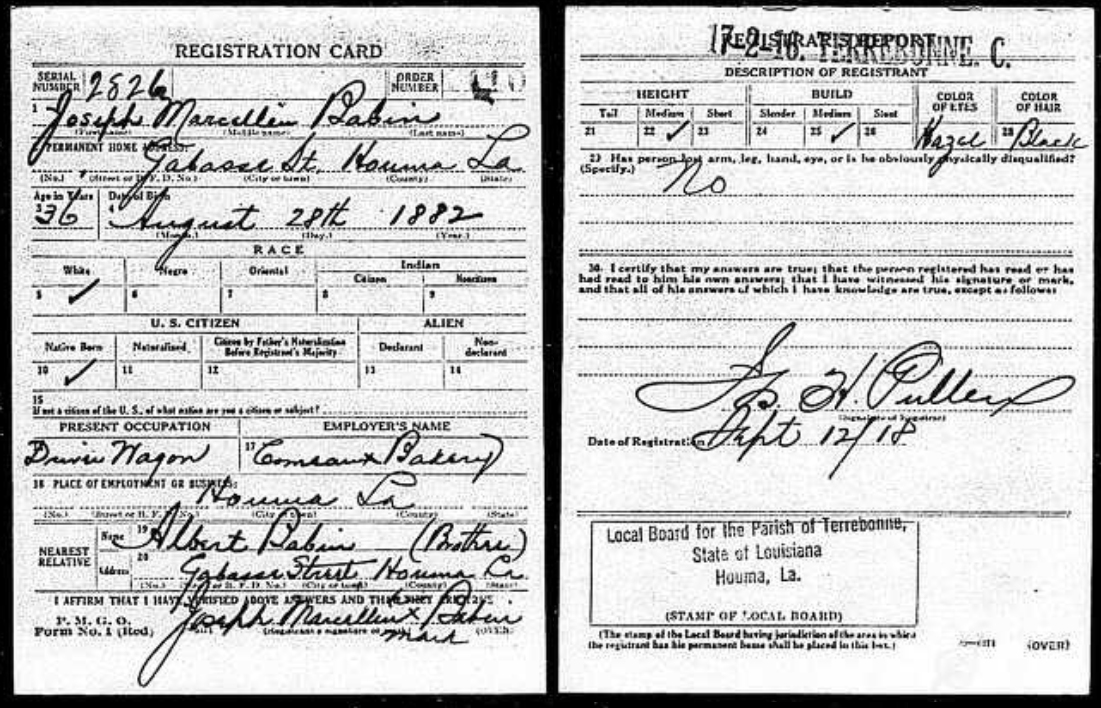 REGISTRATION CARD
SERIAL NUMBER 2826
ORDER NUMBER
1 Joseph Marcellin Babin
(First name) (Middle name) (Last name)
2 PERMANENT HOME ADDRESS:
Gabasse St. Houma La
(No.) (Street or R. F. D. No.) (City or town) (County) (State)
Age in Years Date of Birth
36 August 28th 1882
(Month.) (Day.) (Year.)
RACE
White Negro Oriental Indian
Citizen Noncitizen
5 ✓ 6 7 8 9
U. S. CITIZEN ALIEN
Native Born Naturalized Citizen by Father's Naturalization Before Registrant's Majority Declarant Non-declarant
10 ✓ 11 12 13 14
15
If not a citizen of the U. S., of what nation are you a citizen or subject?
PRESENT OCCUPATION EMPLOYER'S NAME
Drivin Wagon 17 Comeaux Bakery
18 PLACE OF EMPLOYMENT OR BUSINESS:
Houma La
(No.) (Street or R. F. D. No.) (City or town) (County) (State)
NEAREST RELATIVE
Name 19 Albert Babin (Brother)
Address 20 Gabasse Street Houma La
(No.) (Street or R. F. D. No.) (City or town) (County) (State)
I AFFIRM THAT I HAVE VERIFIED ABOVE ANSWERS AND THAT THEY ARE TRUE
P. M. G. O.
Form No. 1 (Red) Joseph Marcellin x Babin
mark
(Registrant's signature or mark) (OVER)
REGISTRAR'S REPORT
17-2-16. TERREBONNE. C.
DESCRIPTION OF REGISTRANT
HEIGHT BUILD COLOR OF EYES COLOR OF HAIR
Tall Medium Short Slender Medium Stout
21 22 ✓ 23 24 25 ✓ 26 Hazel 28 Black
29 Has person lost arm, leg, hand, eye, or is he obviously physically disqualified?
(Specify.) No
30. I certify that my answers are true; that the person registered has read or has
had read to him his own answers; that I have witnessed his signature or mark,
and that all of his answers of which I have knowledge are true, except as follows:
H. Pullen
(Signature of Registrar)
Date of Registration Sept 12/18
Local Board for the Parish of Terrebonne,
State of Louisiana
Houma, La.
(STAMP OF LOCAL BOARD)
(The stamp of the Local Board having jurisdiction of the area in which
the registrant has his permanent home shall be placed in this box.)
(OVER)